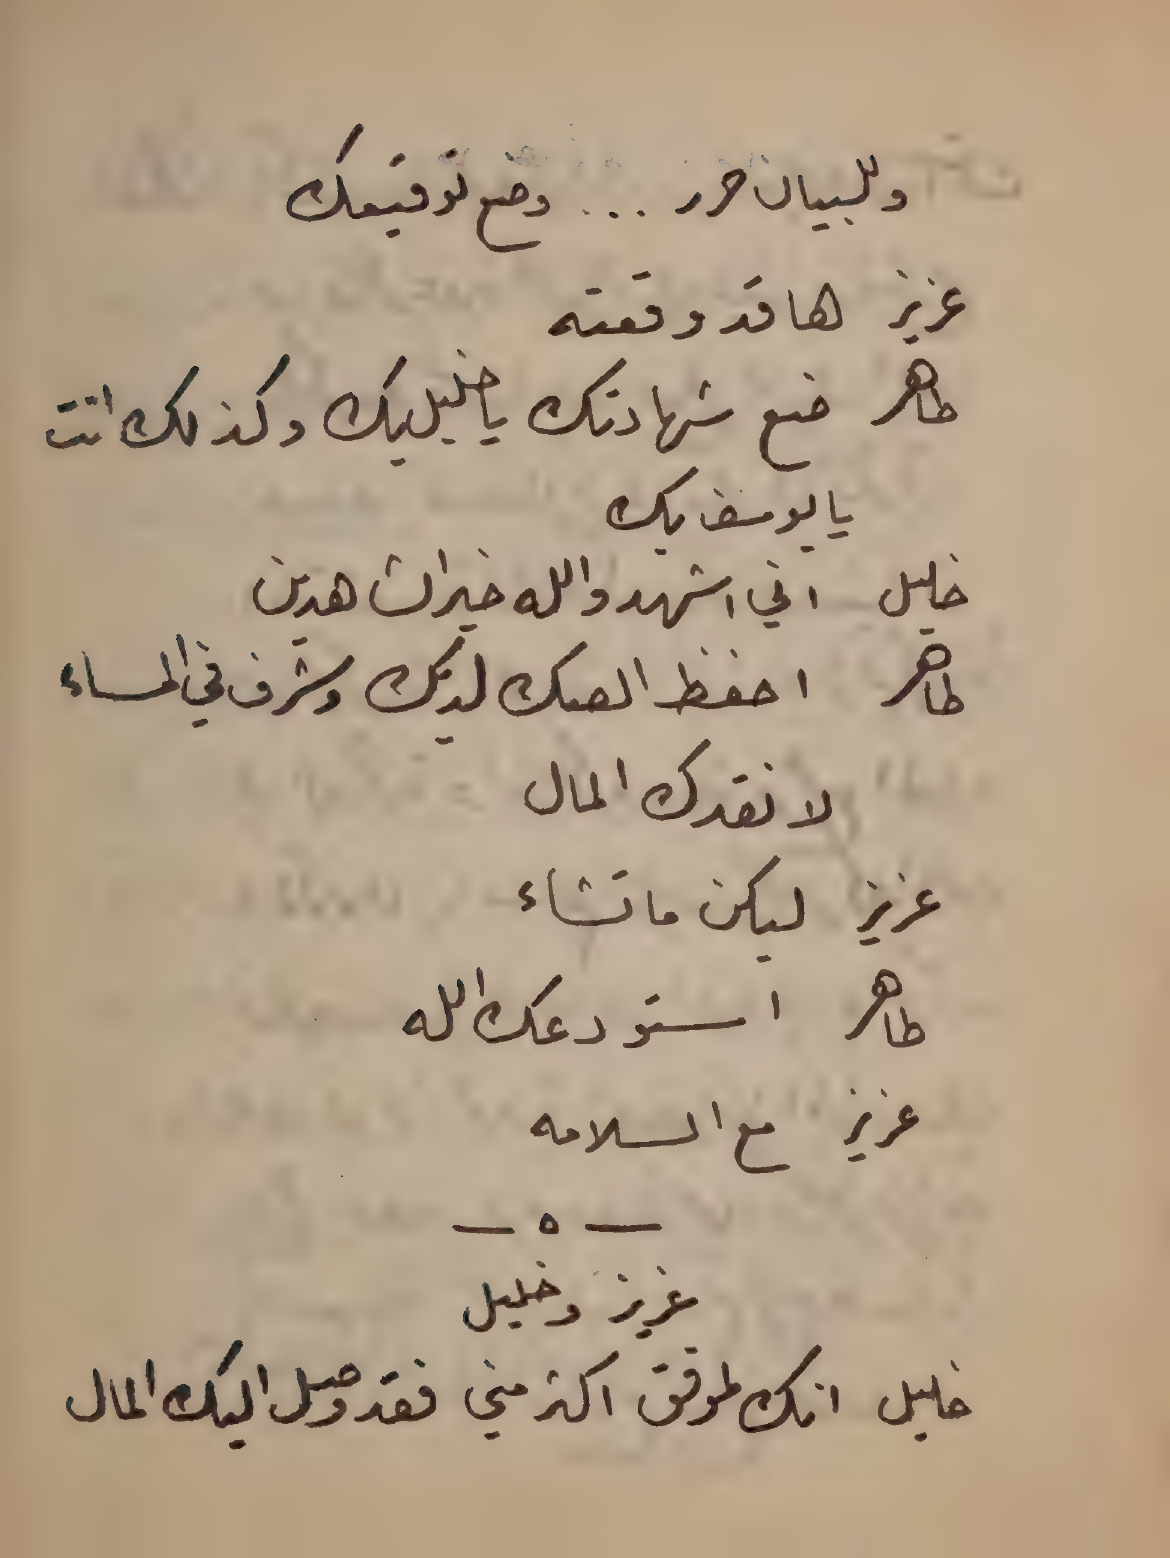 وللبيان حرر ... وضع توقيعك
عزيز هاقد وقعته
طاهر ضع شهادتك ياخليل بك وكذلك انت
يايوسف بك
خليل اني اشهد والله خير الشاهدين
طاهر احفظ الصك لديك وشرف في المساء
لانقدك المال
عزيز ليكن ماتشاء
طاهر استودعك الله
عزيز مع السلامه
— ٥ —
عزيز وخليل
خليل انك لموفق اكثر مني فقد وصل اليك المال